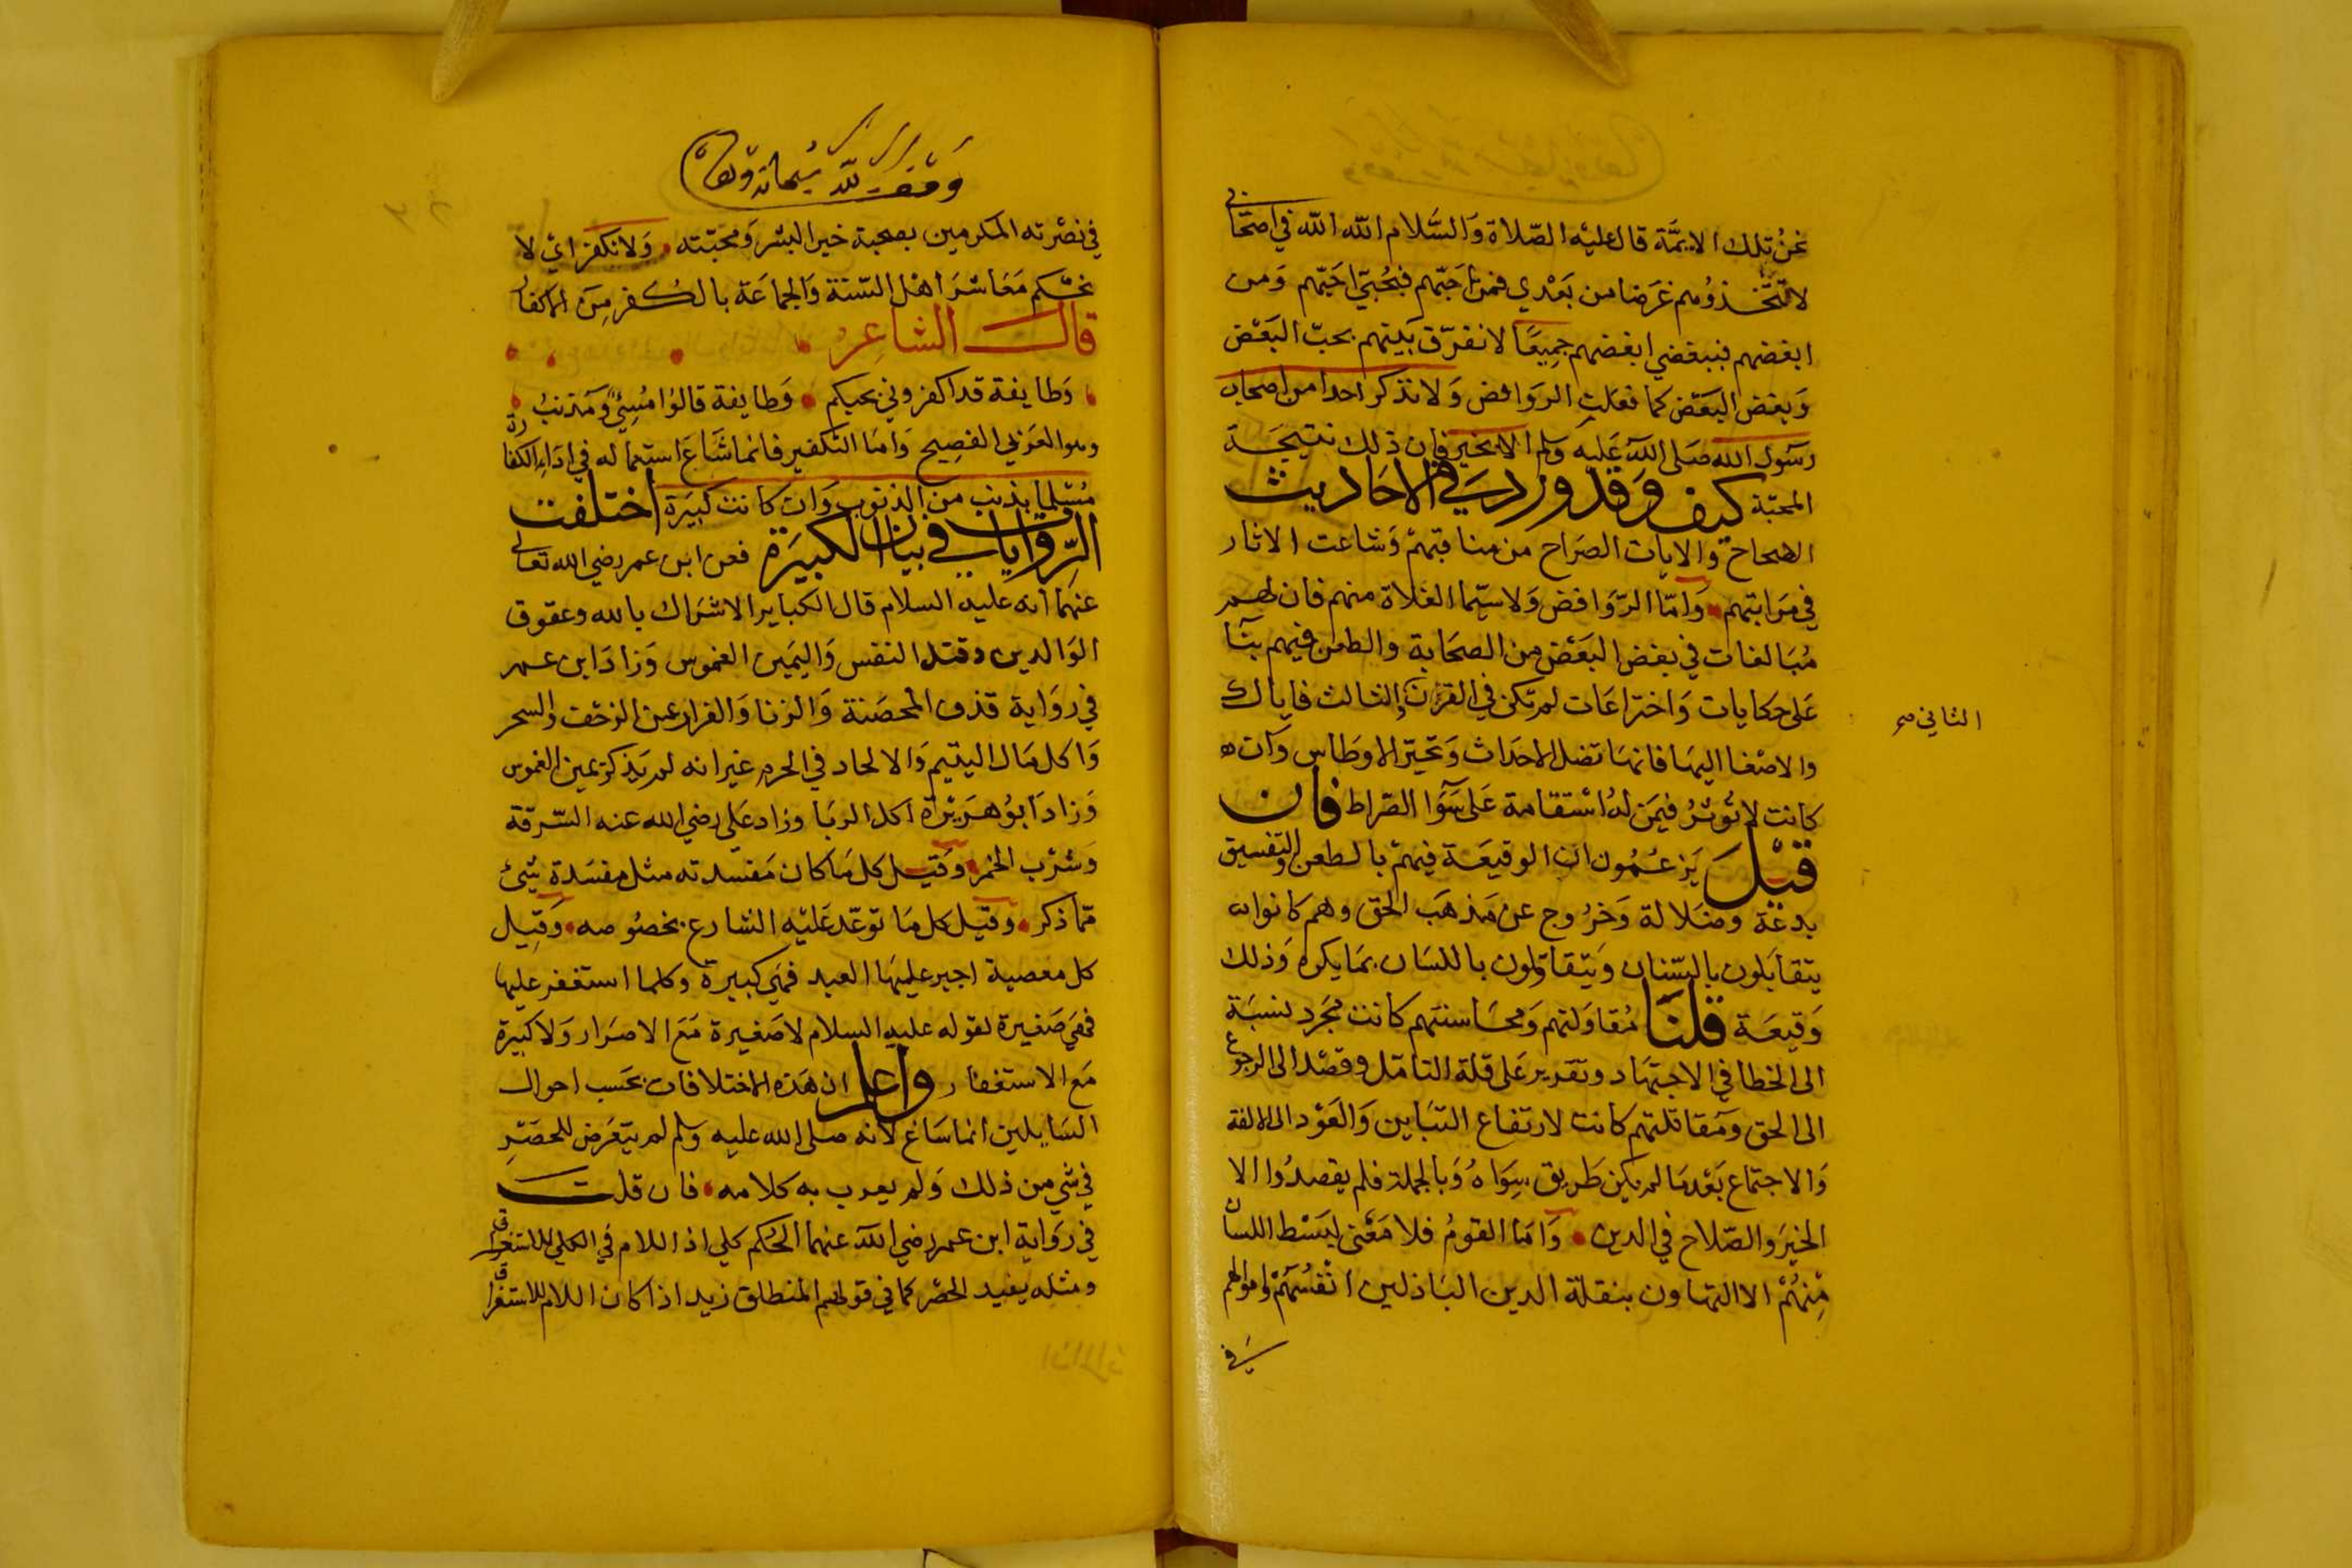 نحنُ تلك الايمَّة قال عليْه الصّلاة وَالسَّلام الله الله في اصحَابي
لا تتّخذوُهم غرَضا من بَعْدي فمن احَبّهم فبحُبّي احَبّهم وَمن
ابغضهم فببغضي ابغضهم جمِيعًا لا نفرّق بَينهم بحبّ البَعْض
وَبغض البَعْض كما فعَلتِ الروَافض وَلا نذكر احدا من اصحاب
رسَول الله صَلى اللهُ عَليه وسلم الا بخير فان ذلك نتيجَة
المحبّة كيف وَقد ورد في الاحَاديث
الصحاح وَالايات الصرَاح من مناقبهمْ وَشاعت الاثار
في مَرَاتبهم وَامّا الرّوَافض وَلاسيّما الغلاة منهم فان لهم
مُبَالغات في بغض البَعْض من الصحَابة والطعن فيهم بنَآ
عَلى حكايات وَاختراعَات لم تكن في القرن الثالث فاياك
الثاني صح
والاصْغا اليهَا فانهَا تضل الاحدَاث وَتحيّر الاوسَاط وَان
كانت لا تُوثرُ فيمَن لهُ اسْتقامة عَلى سَوَآ الصّراط فان
قيْلَ يَزعُمُون ان الوقيعَة فيهمْ بالطعن والتفسيق
بدعَة وضَلالة وَخرُوج عن مَذهَب الحق وهم كانوا
يتقابَلون بالسّنان وَيتقاوَلون باللسَان بمَا يكره وَذلك
وَقيعَة قلنَا مُقاوَلتهم وَمخَاشنتهم كانت مجَرد نسبَة
الى الخطا في الاجتهَاد وتقدير عَلى قلة التامّل وقصْدا الى الرجوع
الى الحق وَمُقاتلتهم كانت لارتفاع التبَاين وَالعَوْد الى الالفة
وَالاجتماع بَعْد مَا لم يكن طَريق سِوَاهُ وَبالجملة فلم يقصدُوا الا
الخيرَ والصّلاح في الدين وَامَا القومُ فلا مَعْنى لبَسْط اللسان
مِنهُمْ الا التهاون بنقلة الدين البَاذلين انفسُهمْ وَاموالهم
في
وَقف لله سبحانه وتعالى
في نصْرته المكرمين بصحبة خير البشر وَمحبّته وَلا نكفر ائ لا
نحْكم مَعَاشرَ اهْل السّنة وَالجماعَة بالكُفر مِنَ الاكفار
قال الشاعِرُ
وَطايفة قد اكفروني بحبكم وَطايفة قالوُا مُسِئٌ وَمذنبُ
وهوا لعَرَبي الفصِيح وَامَا التكفير فانما شَاعَ استعماله في ادَاء الكفارة
مُسْلما بذنب من الذنوب وَان كانت كبيَرة اختلفت
الرّوَايات في بيَان الكبيرَة فعن ابن عمر رضي الله تعالى
عنهمَا انه عليه السلام قال الكبَاير الاشرَاك بالله وعقوق
الوَالدين وقتل النفس وَاليَمين الغموس وَزادَ ابن عمر
في روَاية قذف المحْصَنة وَالزنا وَالفرار عن الزحْف والسحر
وَاكل مَال اليتيم وَالالحاد في الحرم غير انه لم يَذكر يمين الغموس
وَزادَ ابوُ هرَيْرَة اكل الربَا وزاد عَلي رضي الله عنه السّرقة
وَشرْب الخمر وَقيل كل مَا كان مَفسدته مثل مفسَدة شئ
ممّا ذكر وَقيل كل مَا توَعّد عَليْه الشارع بخصُوصه وَقيل
كل معصية اجبر عليهَا العبد فهَي كبيرة وكلما استغفر عليها
فهَي صَغيرة لقوله عليه السلام لا صَغيرة مَعَ الاصرَار وَلا كبيَرة
مَع الاستغفار واعلم ان هَذه الاختلافات بحَسب احوال
السَايلين انما سَاغ لانه صلى الله عليه وسلم لم يتعَرض للحصْرِ
في شي من ذلك وَلم يعرب به كلامه فان قلت
في روَاية ابن عمر رضي الله عنهما الحُكم كلي اذ اللام في الكلي للاستغراق
ومثله يفيد الحصْر كما في قولهم المنطلق زيد اذا كان اللام للاستغراق